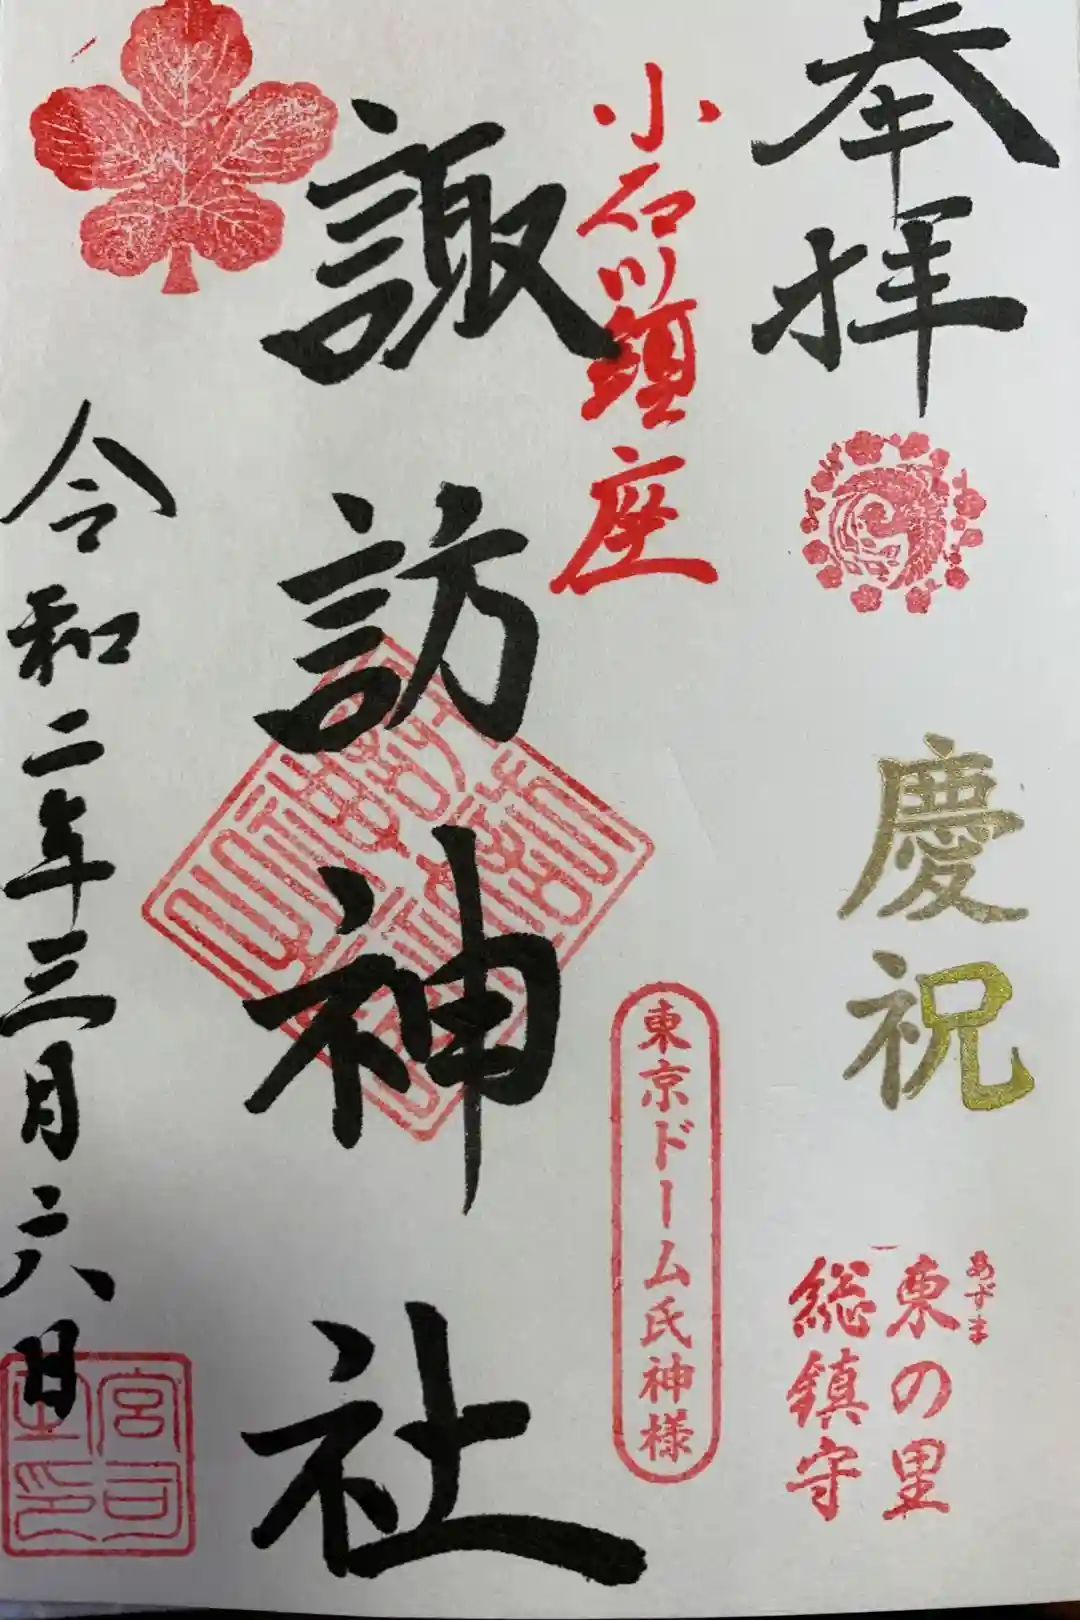 奉拝
慶祝
東の里
あずま
総鎮守
小石川鎮座
東京ドーム氏神様
諏訪神社
令和二年三月六日
宮司
之印